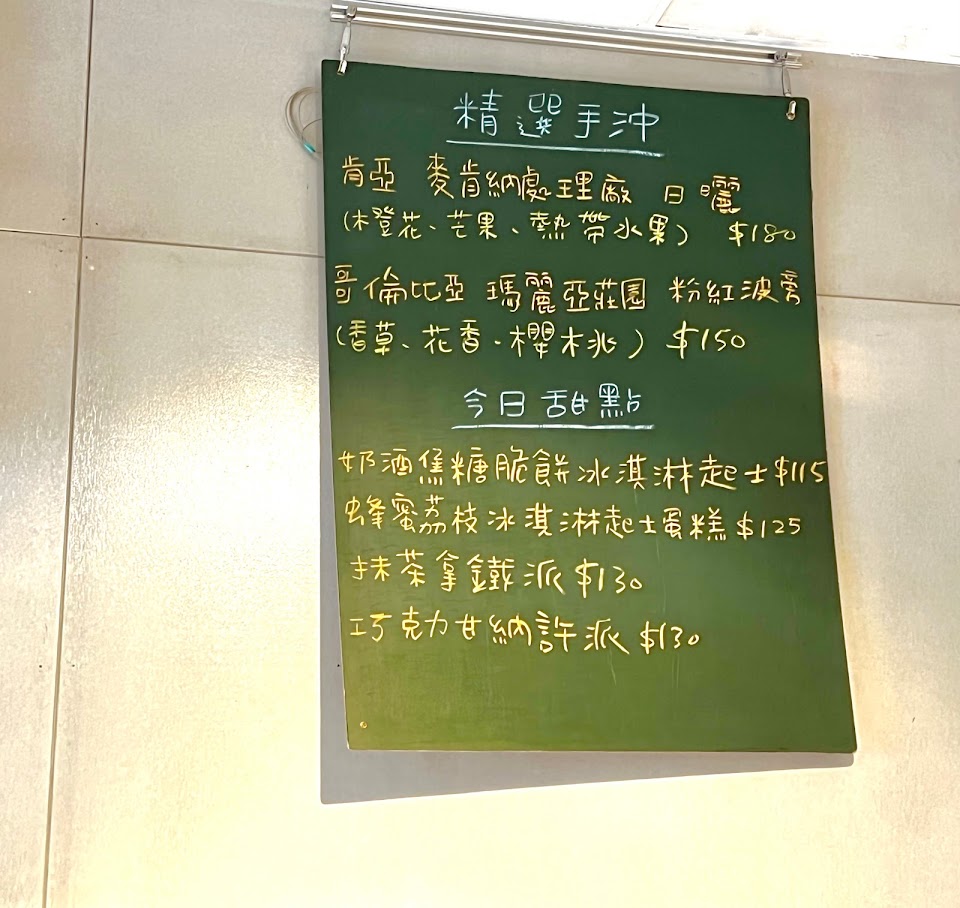 精選手沖
肯亞 麥肯納處理廠 日曬
(橙花、芒果、熱帶水果) $180
哥倫比亞 瑪麗亞莊園 粉紅波旁
(香草、花香、櫻木兆) $150
今日甜點
奶酒焦糖脆餅冰淇淋起士$115
蜂蜜荔枝冰淇淋起士蛋糕$125
抹茶拿鐵派$130
巧克力甘納許派$130